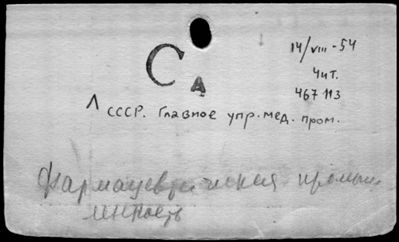 14/VIII-54
Чит.
467113
СА
Л СССР. Главное упр. мед. пром.
Фармацевтическая промыш
ленность